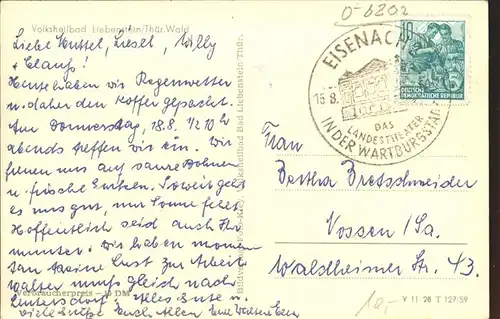 O-6802
Volksheilbad Liebenstein/Thür. Wald
Liebe Liesel, Willy
+ Claus!
Heute haben wir Regenwetter
u. daher den Koffer gepackt.
Am Donnerstag, 18.8. 1/2 10 Uhr
abends treffen wir ein. Wir
freuen uns auf saure Bohnen
u. frische Gurken. Soweit geht
es uns gut, nur Sonne fehlt.
Hoffentlich seid auch Ihr
munter. Wir haben momen
tan keine Lust zur Arbeit.
Walter muß gleich nach
Alles Gute u.
viele Grüße Euch Allen
Verbraucherpreis
DM
EISENACH
15.8.
DAS
LANDESTHEATER
IN DER WARTBURGSTADT
10
DEUTSCHE
DEMOKRATISCHE REPUBLIK
Frau
Bertha Bretschneider
Vossen/Sa.
Waldheimer Str. 43.
10,-
V 11 28 T 127/59